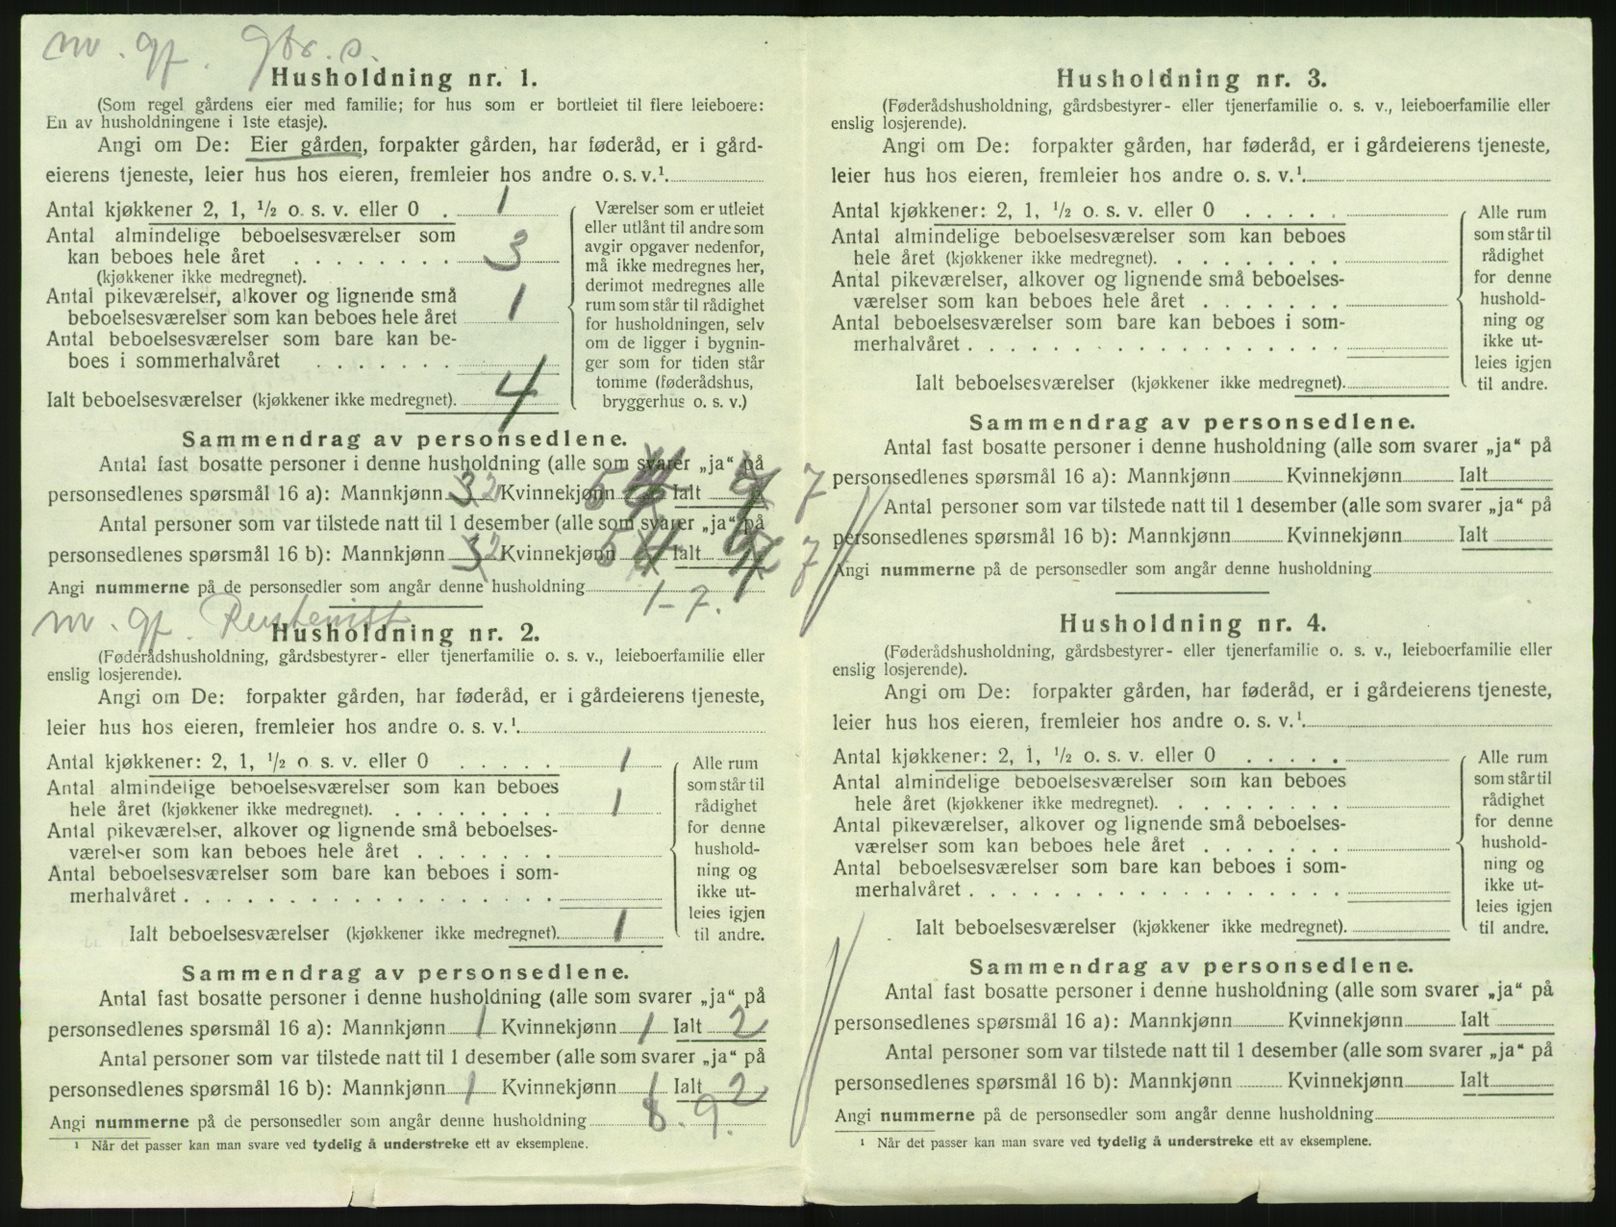 m. gf. gbr. s.
Husholdning nr. 1.
(Som regel gårdens eier med familie; for hus som er bortleiet til flere leieboere:
En av husholdningene i 1ste etasje).
Angi om De: Eier gården, forpakter gården, har føderåd, er i gård-
eierens tjeneste, leier hus hos eieren, fremleier hos andre o. s. v.¹.
Antal kjøkkener 2, 1, ½ o. s. v. eller 0 . 1
Antal almindelige beboelsesværelser som
kan beboes hele året . . . . . . . . 3
(kjøkkener ikke medregnet).
Antal pikeværelser, alkover og lignende små
beboelsesværelser som kan beboes hele året 1
Antal beboelsesværelser som bare kan be-
boes i sommerhalvåret . . . . . . .
Ialt beboelsesværelser (kjøkkener ikke medregnet). 4
Værelser som er utleiet
eller utlånt til andre som
avgir opgaver nedenfor,
må ikke medregnes her,
derimot medregnes alle
rum som står til rådighet
for husholdningen, selv
om de ligger i bygnin-
ger som for tiden står
tomme (føderådshus,
bryggerhus o. s. v.)
Sammendrag av personsedlene.
Antal fast bosatte personer i denne husholdning (alle som svarer „ja“ på
personsedlenes spørsmål 16 a): Mannkjønn 3 2 Kvinnekjønn 5 4 Ialt 7
Antal personer som var tilstede natt til 1 desember (alle som svarer „ja“ på
personsedlenes spørsmål 16 b): Mannkjønn 3 2 Kvinnekjønn 5 4 Ialt 7
Angi nummerne på de personsedler som angår denne husholdning 1-7.
m. gf.
Husholdning nr. 2.
(Føderådshusholdning, gårdsbestyrer- eller tjenerfamilie o. s. v., leieboerfamilie eller
enslig losjerende).
Angi om De: forpakter gården, har føderåd, er i gårdeierens tjeneste,
leier hus hos eieren, fremleier hos andre o. s. v.¹.
Antal kjøkkener: 2, 1, ½ o. s. v. eller 0 . . . . . 1
Antal almindelige beboelsesværelser som kan beboes
hele året (kjøkkener ikke medregnet). . . . . . . . . 1
Antal pikeværelser, alkover og lignende små beboelses-
værelser som kan beboes hele året . . . . . . .
Antal beboelsesværelser som bare kan beboes i som-
merhalvåret . . . . . . . . . . . . . . . . . .
Ialt beboelsesværelser (kjøkkener ikke medregnet). 1
Alle rum
som står til
rådighet
for denne
hushold-
ning og
ikke ut-
leies igjen
til andre.
Sammendrag av personsedlene.
Antal fast bosatte personer i denne husholdning (alle som svarer „ja“ på
personsedlenes spørsmål 16 a): Mannkjønn 1 Kvinnekjønn 1 Ialt 2
Antal personer som var tilstede natt til 1 desember (alle som svarer „ja“ på
personsedlenes spørsmål 16 b): Mannkjønn 1 Kvinnekjønn 1 Ialt 2
Angi nummerne på de personsedler som angår denne husholdning 8. 9.
¹ Når det passer kan man svare ved tydelig å understreke ett av eksemplene.
Husholdning nr. 3.
(Føderådshusholdning, gårdsbestyrer- eller tjenerfamilie o. s. v., leieboerfamilie eller
enslig losjerende).
Angi om De: forpakter gården, har føderåd, er i gårdeierens tjeneste,
leier hus hos eieren, fremleier hos andre o. s. v.¹.
Antal kjøkkener: 2, 1, ½ o. s. v. eller 0 . . . . .
Antal almindelige beboelsesværelser som kan beboes
hele året (kjøkkener ikke medregnet). . . . . . . . .
Antal pikeværelser, alkover og lignende små beboelses-
værelser som kan beboes hele året . . . . . . .
Antal beboelsesværelser som bare kan beboes i som-
merhalvåret . . . . . . . . . . . . . . . . . .
Ialt beboelsesværelser (kjøkkener ikke medregnet).
Alle rum
som står til
rådighet
for denne
hushold-
ning og
ikke ut-
leies igjen
til andre.
Sammendrag av personsedlene.
Antal fast bosatte personer i denne husholdning (alle som svarer „ja“ på
personsedlenes spørsmål 16 a): Mannkjønn Kvinnekjønn Ialt
Antal personer som var tilstede natt til 1 desember (alle som svarer „ja“ på
personsedlenes spørsmål 16 b): Mannkjønn Kvinnekjønn Ialt
Angi nummerne på de personsedler som angår denne husholdning
Husholdning nr. 4.
(Føderådshusholdning, gårdsbestyrer- eller tjenerfamilie o. s. v., leieboerfamilie eller
enslig losjerende).
Angi om De: forpakter gården, har føderåd, er i gårdeierens tjeneste,
leier hus hos eieren, fremleier hos andre o. s. v.¹.
Antal kjøkkener: 2, 1, ½ o. s. v. eller 0 . . . . .
Antal almindelige beboelsesværelser som kan beboes
hele året (kjøkkener ikke medregnet). . . . . . . . .
Antal pikeværelser, alkover og lignende små beboelses-
værelser som kan beboes hele året . . . . . . .
Antal beboelsesværelser som bare kan beboes i som-
merhalvåret . . . . . . . . . . . . . . . . . .
Ialt beboelsesværelser (kjøkkener ikke medregnet).
Alle rum
som står til
rådighet
for denne
hushold-
ning og
ikke ut-
leies igjen
til andre.
Sammendrag av personsedlene.
Antal fast bosatte personer i denne husholdning (alle som svarer „ja“ på
personsedlenes spørsmål 16 a): Mannkjønn Kvinnekjønn Ialt
Antal personer som var tilstede natt til 1 desember (alle som svarer „ja“ på
personsedlenes spørsmål 16 b): Mannkjønn Kvinnekjønn Ialt
Angi nummerne på de personsedler som angår denne husholdning
¹ Når det passer kan man svare ved tydelig å understreke ett av eksemplene.